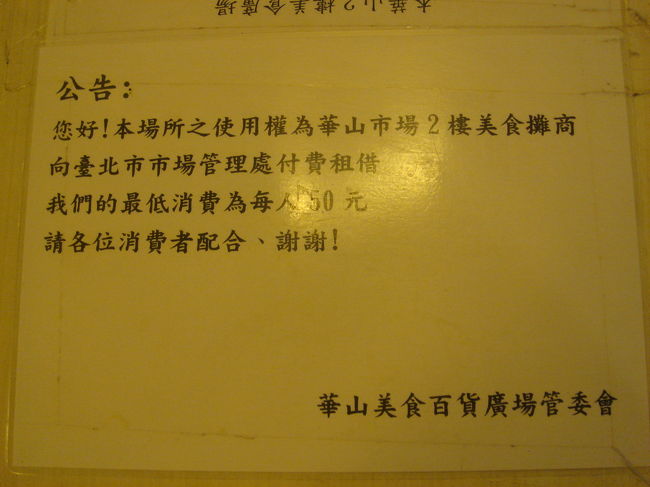 本華山2樓美食廣場
公告:
您好!本場所之使用權為華山市場2樓美食攤商
向臺北市市場管理處付費租借
我們的最低消費為每人50元
請各位消費者配合、謝謝!
華山美食百貨廣場管委會